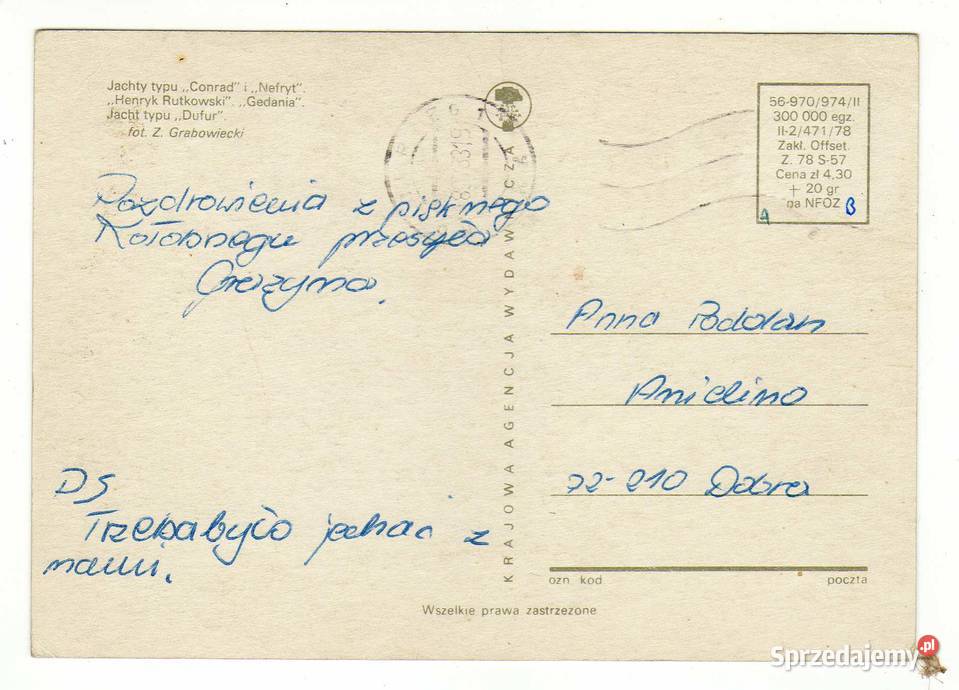 Jachty typu „Conrad" i „Nefryt".
„Henryk Rutkowski". „Gedania".
Jacht typu „Dufur".
fot. Z. Grabowiecki
Pozdrowienia z pięknego
Kołobrzegu przesyła
Grażyna.
DS
Trzeba było jechać z
nami.
KRAJOWA AGENCJA WYDAWNICZA
56-970/974/II
300 000 egz.
II-2/471/78
Zakł. Offset.
Z. 78 S-57
Cena zł 4,30
+ 20 gr
na NFOZ
A B
Anna Podolan
Anielino
72-210 Dobra
ozn. kod poczta
Wszelkie prawa zastrzeżone
Sprzedajemy.pl